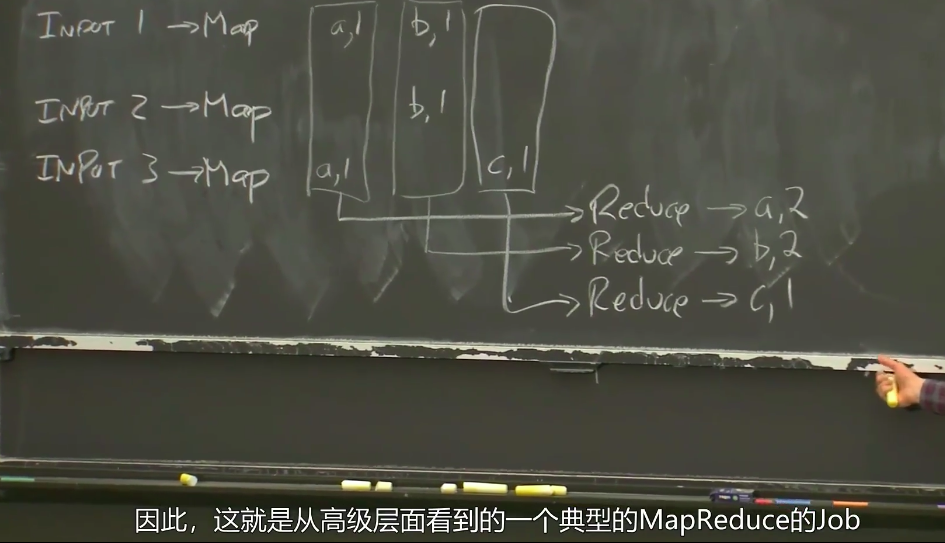 INPUT 1 → Map a,1 b,1
INPUT 2 → Map b,1
INPUT 3 → Map a,1 c,1
Reduce → a,2
Reduce → b,2
Reduce → c,1
因此，这就是从高级层面看到的一个典型的MapReduce的Job